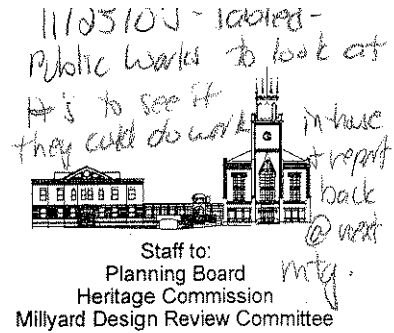 11/25/03 - Tabled -
Public Works to look at
#'s to see if
they could do work in-house
+ report
back
@ next
mtg.
Staff to:
Planning Board
Heritage Commission
Millyard Design Review Committee